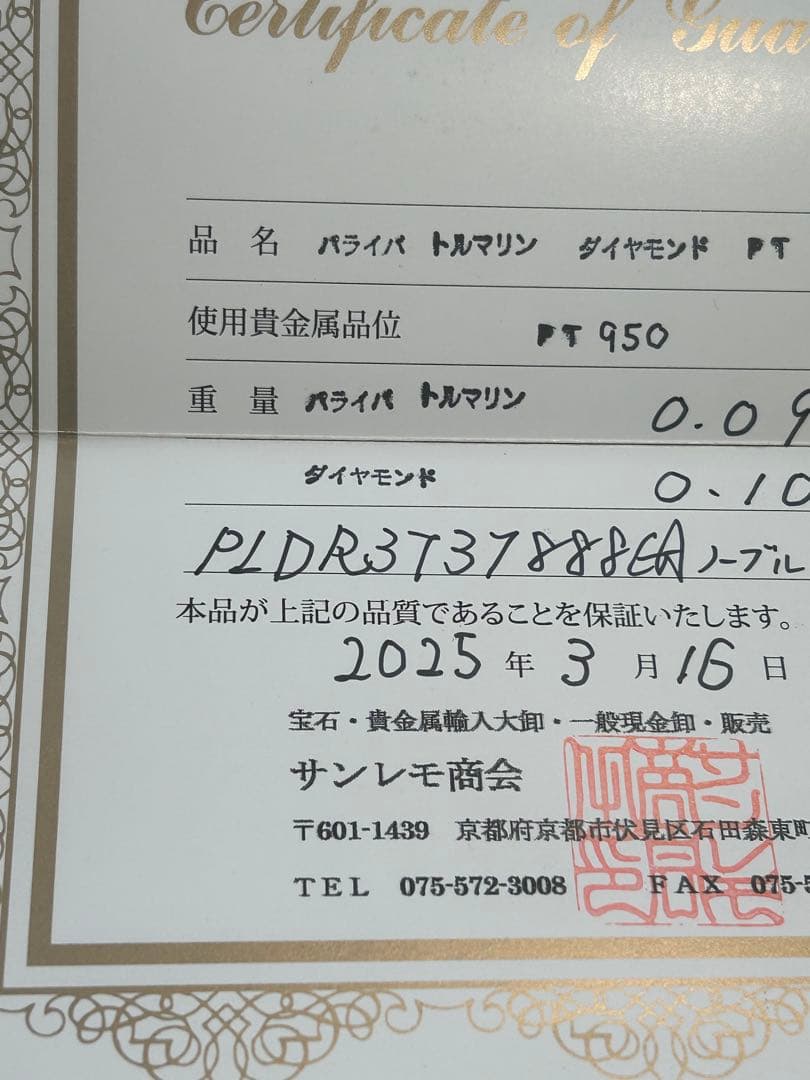 Certificate of Gua
品名 パライバ トルマリン ダイヤモンド PT
使用貴金属品位 PT 950
重量 パライバ トルマリン 0.09
ダイヤモンド 0.10
PLDR3737888EA ノーブル
本品が上記の品質であることを保証いたします。
2025 年 3 月 16 日
宝石・貴金属輸入大卸・一般現金卸・販売
サンレモ商会
〒601-1439 京都府京都市伏見区石田森東町
TEL 075-572-3008 FAX 075-5